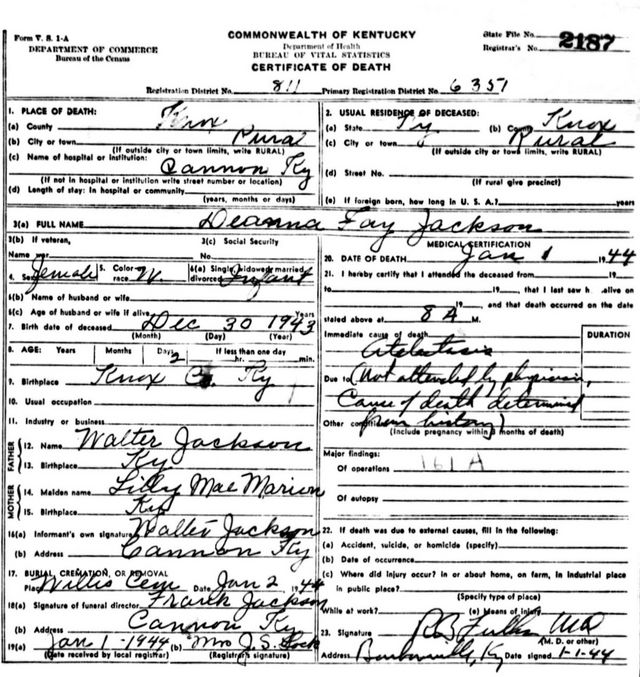 Form V. S. 1-A
DEPARTMENT OF COMMERCE
Bureau of the Census
COMMONWEALTH OF KENTUCKY
Department of Health
BUREAU OF VITAL STATISTICS
CERTIFICATE OF DEATH
State File No.
Registrar's No. 2187
Registration District No. 811 Primary Registration District No. 6351
1. PLACE OF DEATH:
(a) County Knox
(b) City or town Rural
(If outside city or town limits, write RURAL)
(c) Name of hospital or institution:
Cannon Ky
(If not in hospital or institution write street number or location)
(d) Length of stay: In hospital or community
(years, months or days)
2. USUAL RESIDENCE OF DECEASED:
(a) State Ky (b) County Knox
(c) City or town Rural
(If outside city or town limits, write RURAL)
(d) Street No.
(If rural give precinct)
(e) If foreign born, how long in U. S. A.? years
3(a) FULL NAME Deanna Fay Jackson
3(b) If veteran,
Name war
3(c) Social Security
No.
4. Sex Female 5. Color race W. 6(a) Single, widowed, married divorced Infant
6(b) Name of husband or wife
6(c) Age of husband or wife if alive Years
7. Birth date of deceased Dec 30 1943
(Month) (Day) (Year)
8. AGE: Years Months Days 2 If less than one day
hr. min.
9. Birthplace Knox Co. Ky
10. Usual occupation
11. Industry or business
FATHER
12. Name Walter Jackson
13. Birthplace Ky
MOTHER
14. Maiden name Lilly Mae Marion
15. Birthplace Ky
16(a) Informant's own signature Walter Jackson
(b) Address Cannon Ky
17. BURIAL, CREMATION, OR REMOVAL
Place Willis Cem Date Jan 2, 1944
18(a) Signature of funeral director Frank Jackson
(b) Address Cannon Ky
19(a) Jan 1-1944 (b) Mrs J. S. Lock
(Date received by local registrar) (Registrar's signature)
MEDICAL CERTIFICATION
20. DATE OF DEATH Jan 1 1944
21. I hereby certify that I attended the deceased from 19
to 19, that I last saw h alive on
19, and that death occurred on the date
stated above at 8 A M.
Immediate cause of death DURATION
Atelectasis
Due to (Not attended by physician,
Cause of death determined
Other conditions from history)
(Include pregnancy within 3 months of death)
Major findings:
Of operations 161 A
Of autopsy
22. If death was due to external causes, fill in the following:
(a) Accident, suicide, or homicide (specify)
(b) Date of occurrence
(c) Where did injury occur? In or about home, on farm, in industrial place
in public place?
(Specify type of place)
While at work? (e) Means of injury
23. Signature MD
(M. D. or other)
Address Barbourville, Ky Date signed 1-1-44